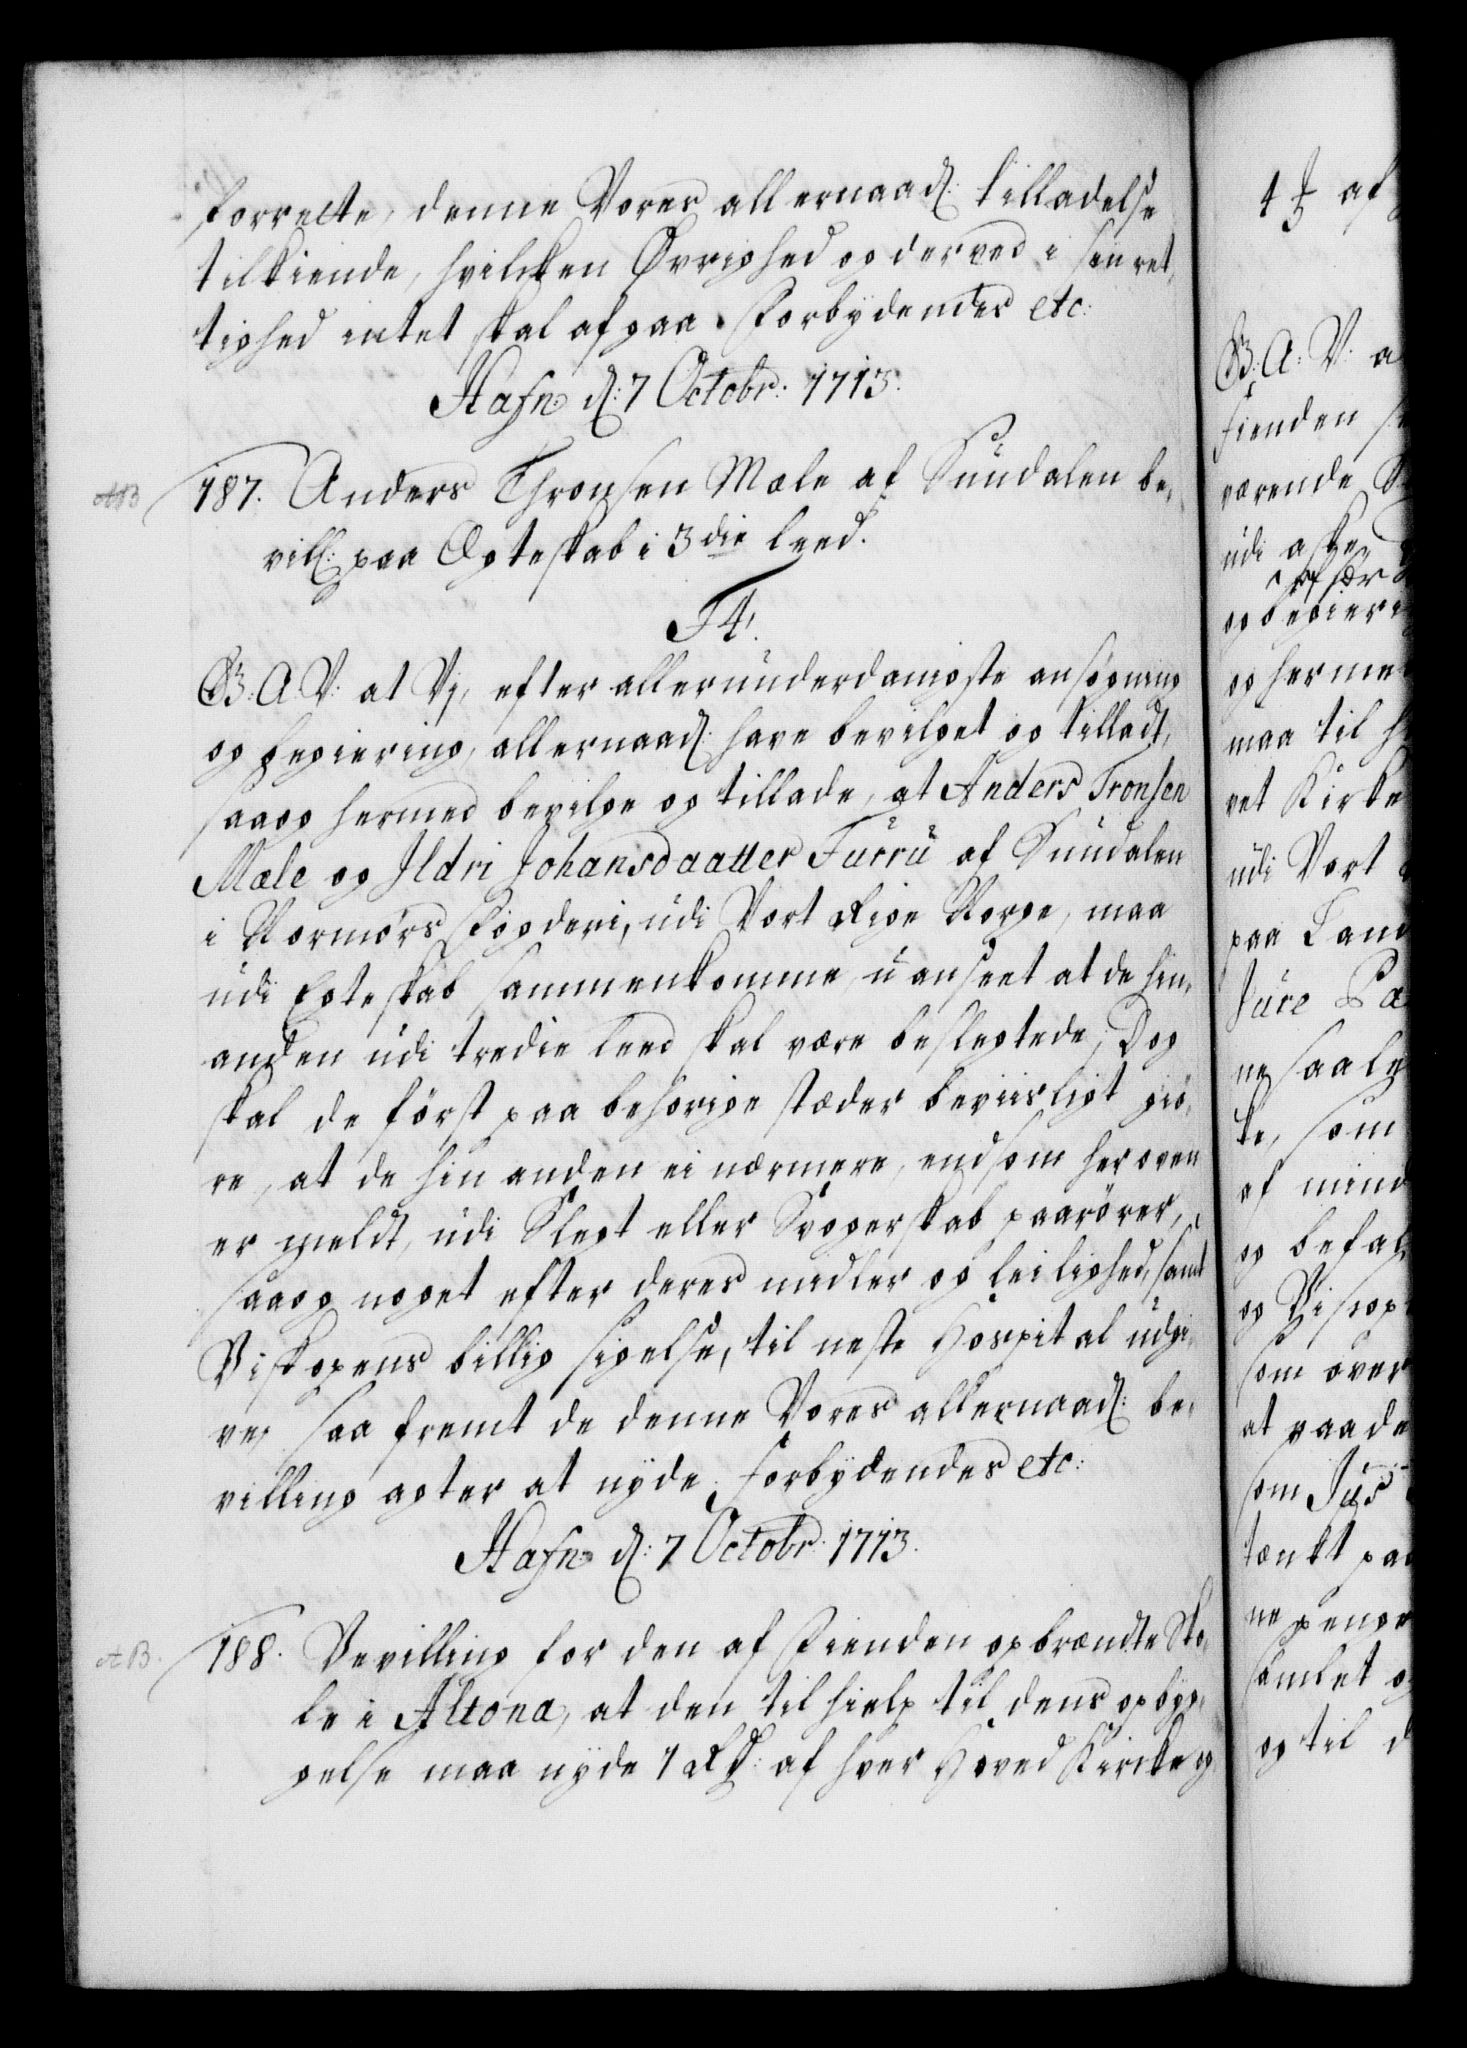 forrette, denne Vores allernaad: Tilladelse
tilkiende, hvilken Øvrighed og derved i sin ret,
tighed intet skal afgaa. Forbydendes etc:
Hafn: d: 7 Octobr: 1713.
AB 187. Anders Thronsen Mæle af Sundalen be,
vill: paa Ægteskab i 3die leed.
F4.
G. A. V: at Vj, efter allerunderdanigste ansøgning
og begiering, allernaad: have bevilget og tilladt,
saa og hermed bevilge og tillade, at Anders Tronsen
Mæle og Ildri Johansdaatter Furru af Sundalen
i Normørs Fogderi, udi Vort Rige Norge, maa
udi Egteskab sammenkomme, uanseet at de hin,
anden udi tredie leed skal være beslegtede; Dog
skal de først paa behørige stæder beviisligt giø,
re, at de hin anden ei nærmere, end som her oven
er meldt, udi Slegt eller Svogerskab paarører,
saa og noget efter deres midler og leilighed, samt
Biskopens billig sigelse, til neste Hospital udgi,
ve, saa fremt de denne Vores allernaad: be,
villing agter at nyde. Forbydendes etc:
Hafn: d: 7 Octobr: 1713.
AB. 188. Bevilling for den af Fienden opbrændte Sko,
le i Altona, at den til hielp til dens opbyg,
gelse maa nyde 1 Rd: af hver Hoved Kircke og
4 af
G. A: V: a
fienden
værende
udi aske
og begieri
og herme
maa til h
vet Kirke
udi Vort
paa Land
Jure Pa
ne saale
te, som
af mind
og befal
og Biscop
som over
at paade
som Jus
tænkt paa
ne penge
samlet o
og til d